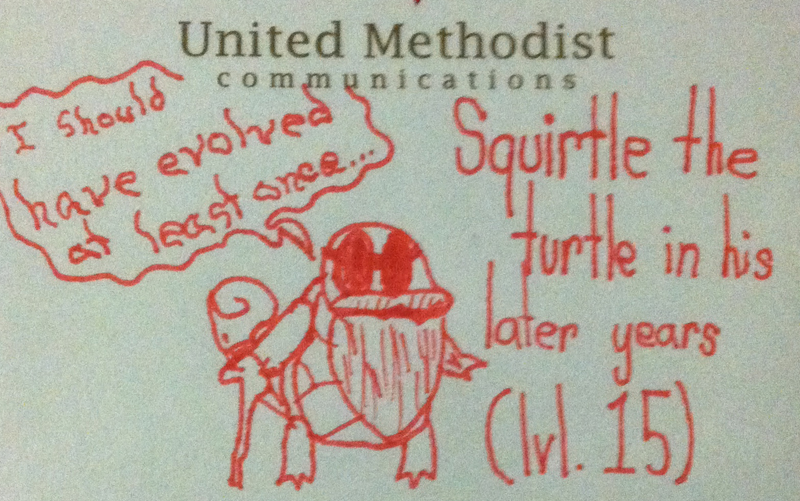 United Methodist
communications
I should
have evolved
at least once...
Squirtle the
turtle in his
later years
(lvl. 15)